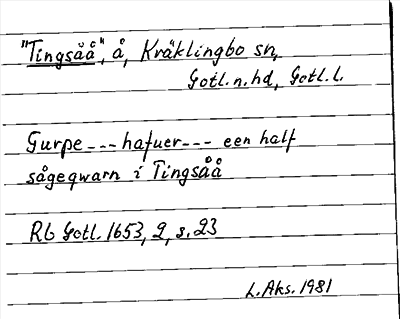 "Tingsåå", å, Kräklingbo sn,
Gotl. n. hd, Gotl. l.
Gurpe --- hafuer --- een half
sågeqwarn i Tingsåå
Rb Gotl. 1653, 2, s. 23
L. Aks. 1981